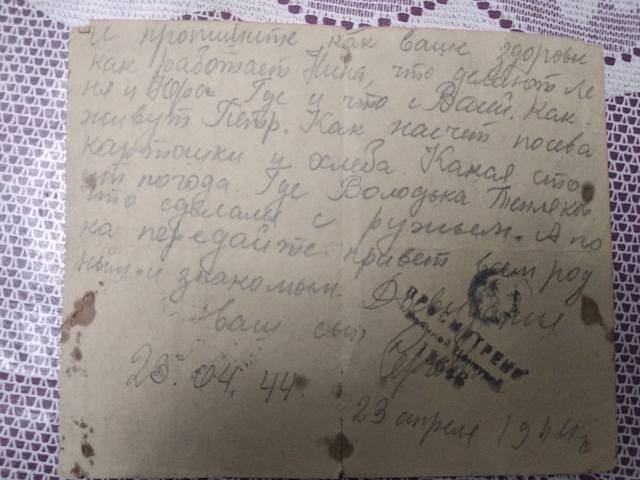 и пропишите как ваше здоровье
как работает Нина, что делают Ле
ня и Юра. Где и что с Васей. Как
живут Петр. Как насчет посева
картошки и хлеба. Какая сто
ит погода. Где Володька
что сделали с ружьем. А по
ка передайте привет всем род
ным и знакомым. Досвидания
ваш сын
ПРОСМОТРЕНО
23.04.44
23 апреля 1944 г